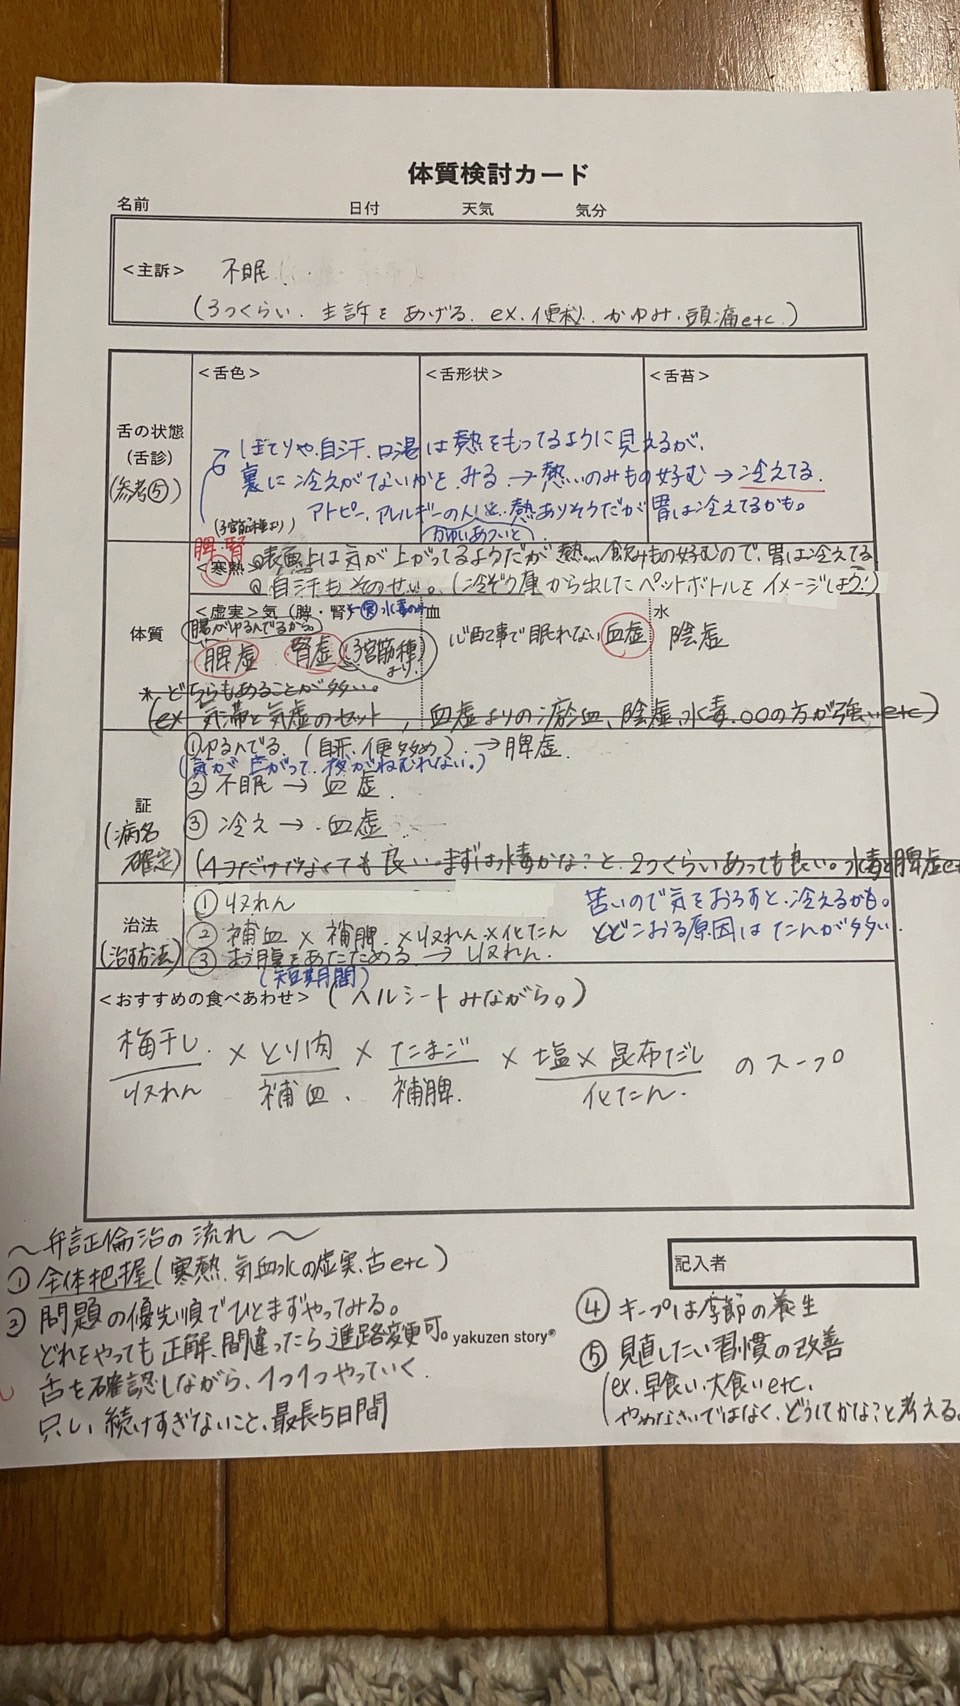 体質検討カード
名前 日付 天気 気分
<主訴> 不眠
(3つくらい、主訴をあげる。ex.便秘、かゆみ、頭痛etc.)
<舌色> <舌形状> <舌苔>
舌の状態
(舌診)
(参考⑤)
ほてりや、自汗、口渇は熱をもってるように見えるが、
裏に冷えがないかをみる→熱いのみもの好む→冷えてる。
アトピー、アレルギーの人は、熱ありそうだが胃は冷えてるかも。
(子宮筋種より)
かゆいあついと
脾・腎
<寒熱> 表面上は気が上がってるようだが熱い飲みもの好むので、胃は冷えてる
自汗もそのせい。(冷ぞう庫から出したペットボトルをイメージしよう!)
体質
<虚実>気(脾・腎) 水毒の 血 水
腸がゆるんでるから。
脾虚 腎虚 (子宮筋種より) 心配事で眠れない 血虚 陰虚
*どちらもあることが多い。
(ex 気滞と気虚のセット、血虚よりの瘀血、陰虚、水毒、〇〇の方が強いetc)
証
(病名
確定)
①ゆるんでる。(自汗、便多め)→脾虚
(気が上がって、夜がねむれない。)
②不眠→血虚
③冷え→血虚
(4つだけでなくても良い。まずは水毒かなこと、2つくらいあっても良い。水毒と脾虚
治法
(治す方法)
①収れん
②補血×補脾×収れん×化たん
③お腹をあたためる→収れん
(短期間)
苦いので気をおろすと、冷えるかも。
とどこおる原因はたんが多い。
<おすすめの食べあわせ> (ヘルシートみながら。)
梅干し × とり肉 × たまご × 塩×昆布だし のスープ
収れん 補血 補脾 化たん
〜弁証倫治の流れ〜
①全体把握(寒熱、気血水の虚実、舌etc)
②問題の優先順でひとまずやってみる。
どれをやっても正解、間違ったら進路変更可。
舌を確認しながら、1つ1つやっていく
只し、続けすぎないこと、最長5日間
yakuzen story®
記入者
④キープは季節の養生
⑤見直したい習慣の改善
(ex.早食い、大食いetc.
やめなさいではなく、どうしてかなこと考える。